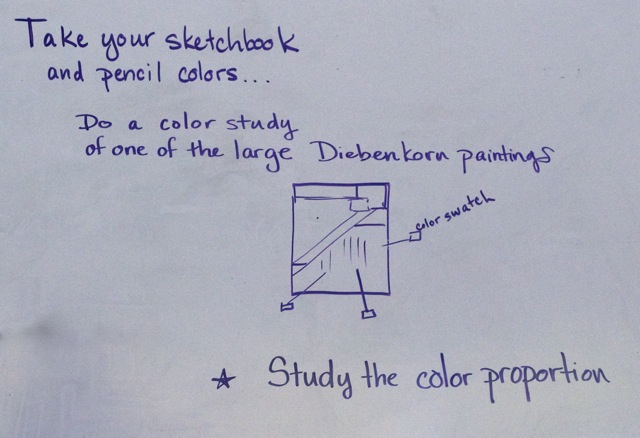 Take your sketchbook
and pencil colors...
Do a color study
of one of the large Diebenkorn paintings
color swatch
☆ Study the color proportion